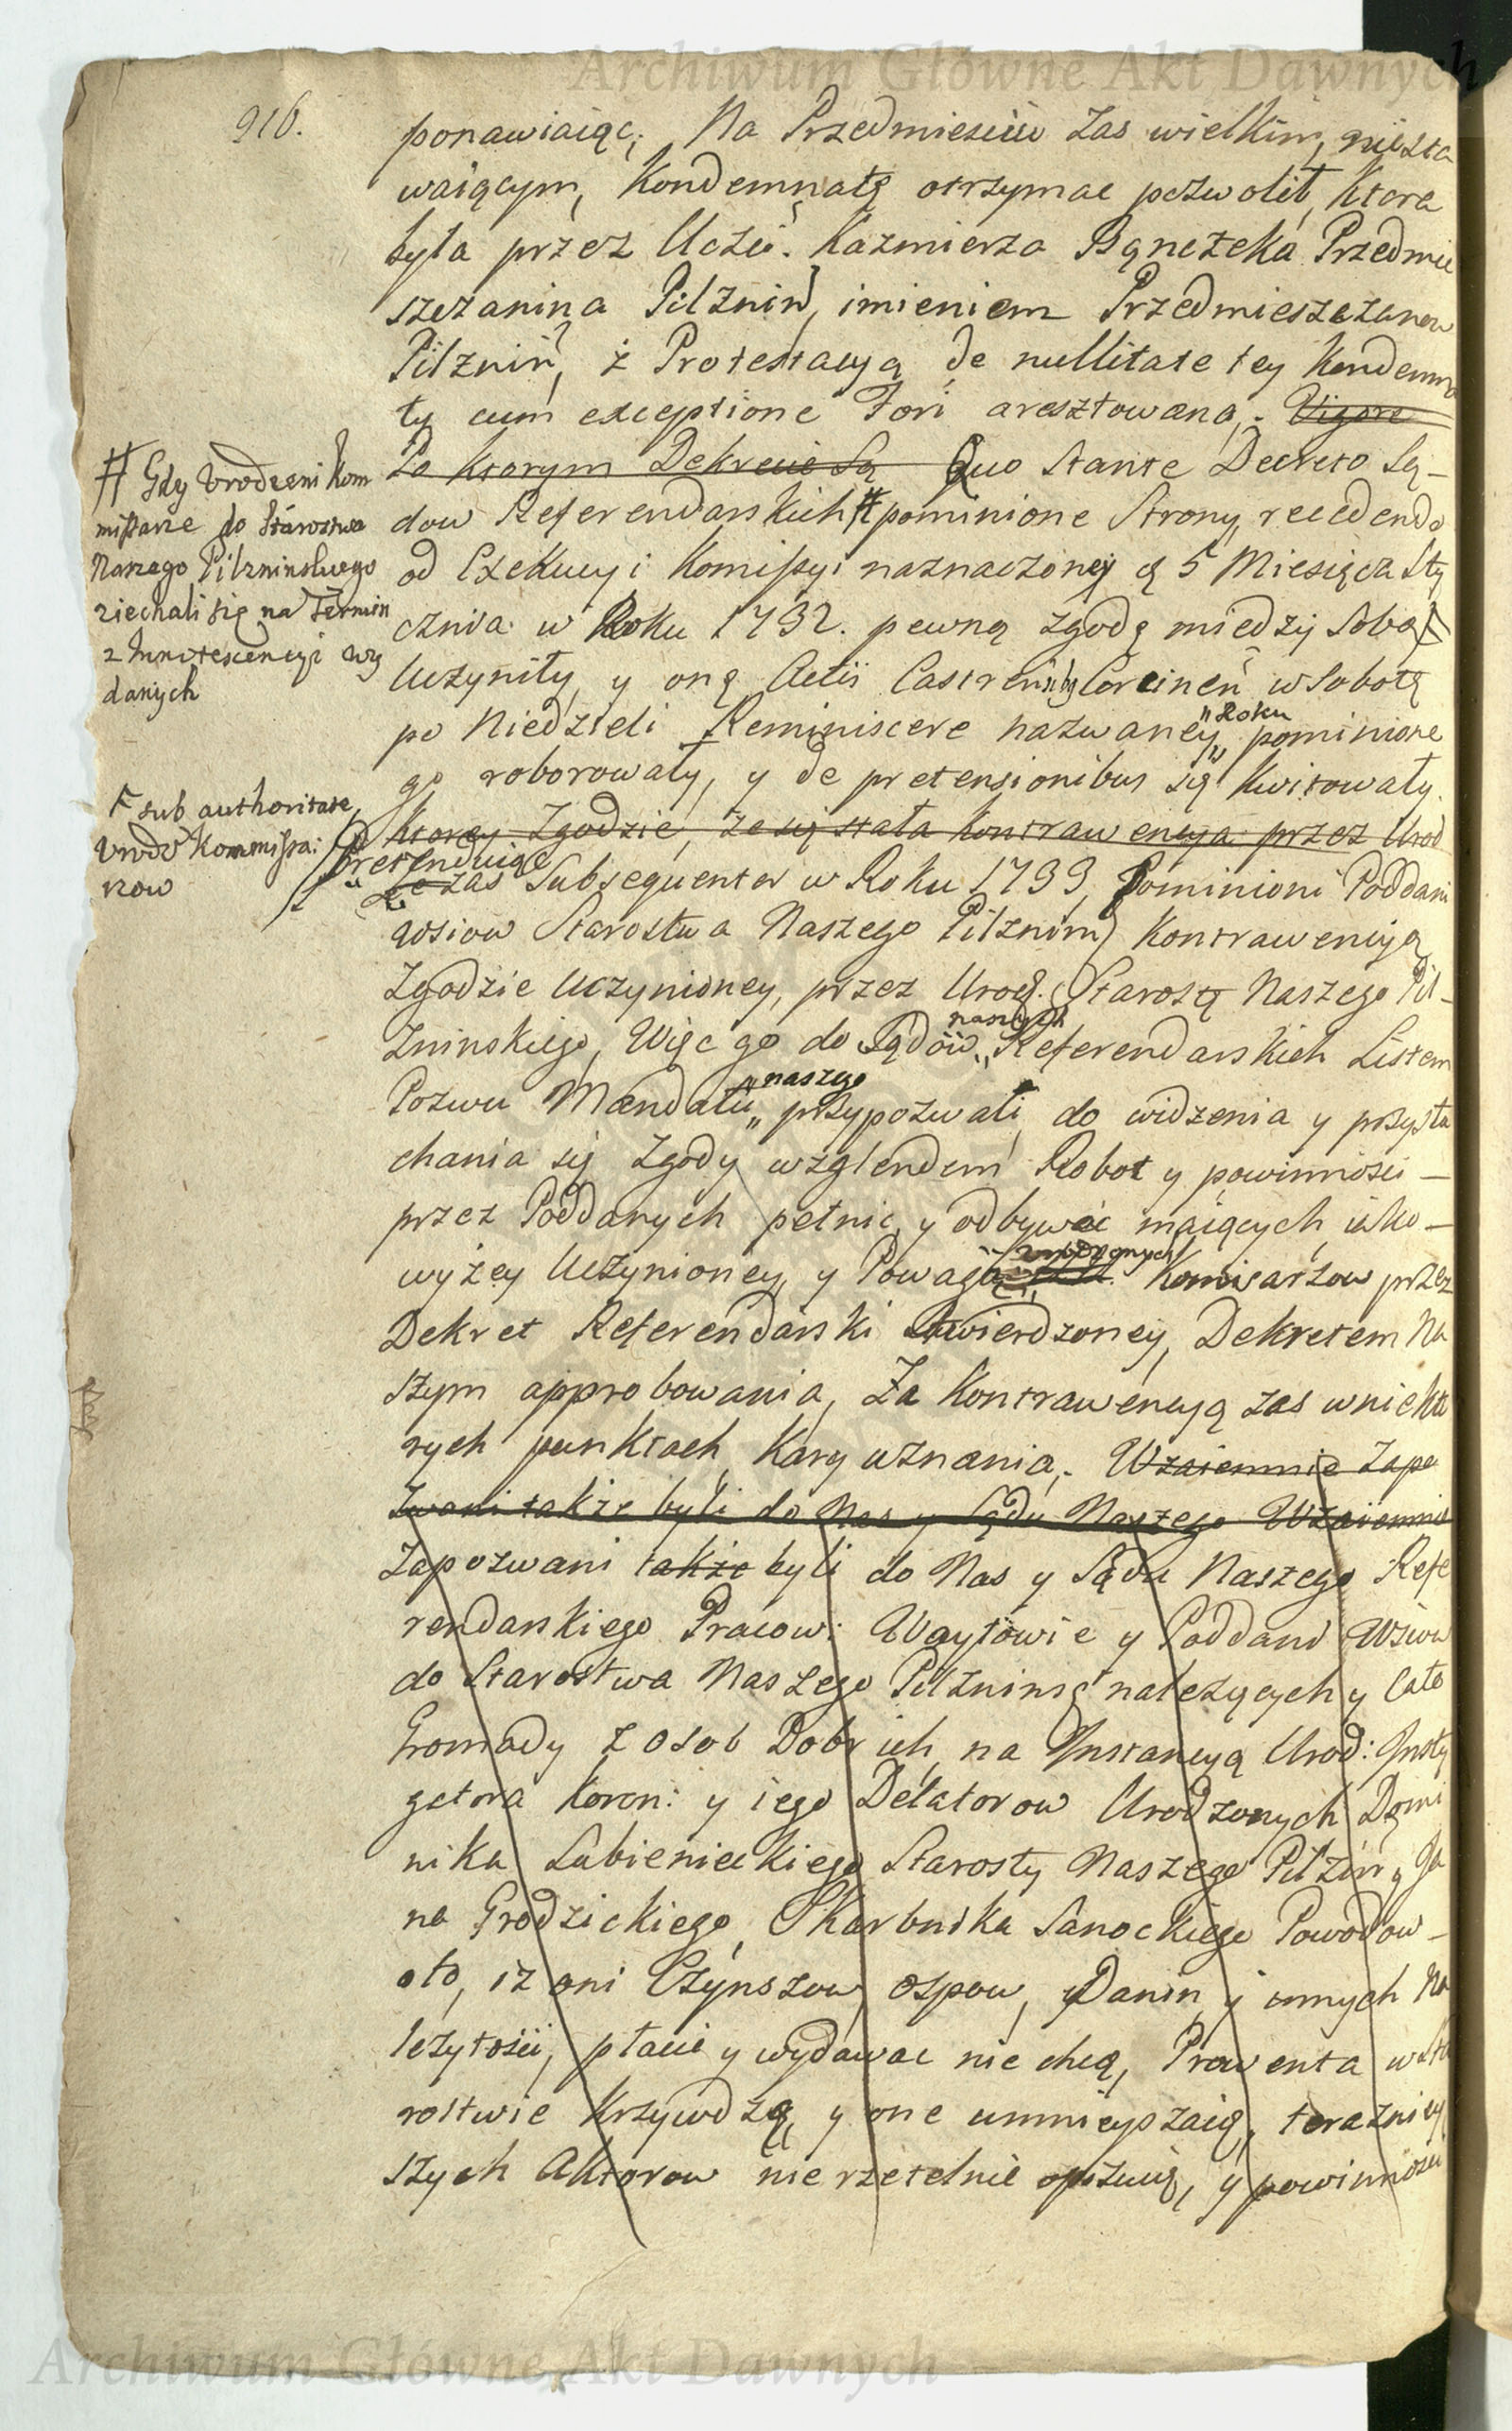 Archiwum Główne Akt Dawnych
916.
ponawiaiąc; Na Przedmiesciu zas wielkim, niesta
waiącym, Kondemnatę otrzymac pozwolił, Ktora
była przez Uczci: Kazmierza Bączeka Przedmie
szczanina Pilznin, imieniem Przedmieszczanow
Pilznin, z Protestacyą de nullitate tey Kondemna
ty cum exceptione Fori aresztowana. Vigore
Po Ktorym Dekrecie Są Quo Stante Decreto Są-
dow Referendarskich # pominione Strony, recedendo
od Exekucyi Komissyi naznaczoney ą 5 Miesiąca Sty
cznia w Roku 1792. pewną zgodę miedzy Sobą F
Uczyniły, y oną Actis Castren: Corcinen w Sobotę
po Niedzieli Reminiscere nazwaney, "Roku pominione
go roborowały, y de pretensionibus się Kwitowały.
Ktorey Zgodzie, ze się stała Kontrawencya przez Urod
pretenduiąc
Ze zas Subsequenter w Roku 1793, Pominioni Poddani
wsiow Starostwa Naszego Pilznin) Kontrawencyą
Zgodzie Uczynioney, przez Urod. Starostę Naszego Pil-
zninskiego, Więc go do Sądow "naszych Referendarskich Listem
Pozwu Mandatu "naszego przypozwali, do widzenia y przysłu
chania się Zgody wzglendem Robot y powinnosci —
przez Poddanych pełnic y odbywac maiących, iako —
wyżey Uczynioney, y Powagą urodzonych Komisarzow przez
Dekret Referendarski stwierdzoney, Dekretem Na
szym approbowania, Za Kontrawencyą zas w niekto
rych punktach Kary uznania. Wzaiemnie Zapo
zwani także byli do Nas y Sądu Naszego Wzaiemnie
Zapozwani także byli do Nas y Sądu Naszego Refe
rendarskiego Pracow: Woytowie y Poddani Wsiow
do Starostwa Naszego Pilznins: należących y Cała
Gromady z osob Dobr ich, na Instancyą Urod: Insty
gatora Koron: y iego Delatorow Urodzonych Domi
nika Łubienieckiego Starosty Naszego Pilzin: y Ja
na Grodzickiego, Skarbnika Sanockiego Powodow —
oto, iz oni Czynszow, ospow, y Danin, y innych Na
leżytosci, płacic y wydawac nie chcą, Prowenta w Sta
rostwie Krzywdzą, y one umnieyszaią, teraznięy
szych Aktorow nie rzetelnie opisuią, y powinnosci
# Gdy Urodzeni Kom
missarze do Starostwa
Naszego Pilzninskiego
ziechali się na Termin
z Innotescencyi wy
danych
F sub authoritate
Urodz Kommissa:
rzow
Archiwum Główne Akt Dawnych